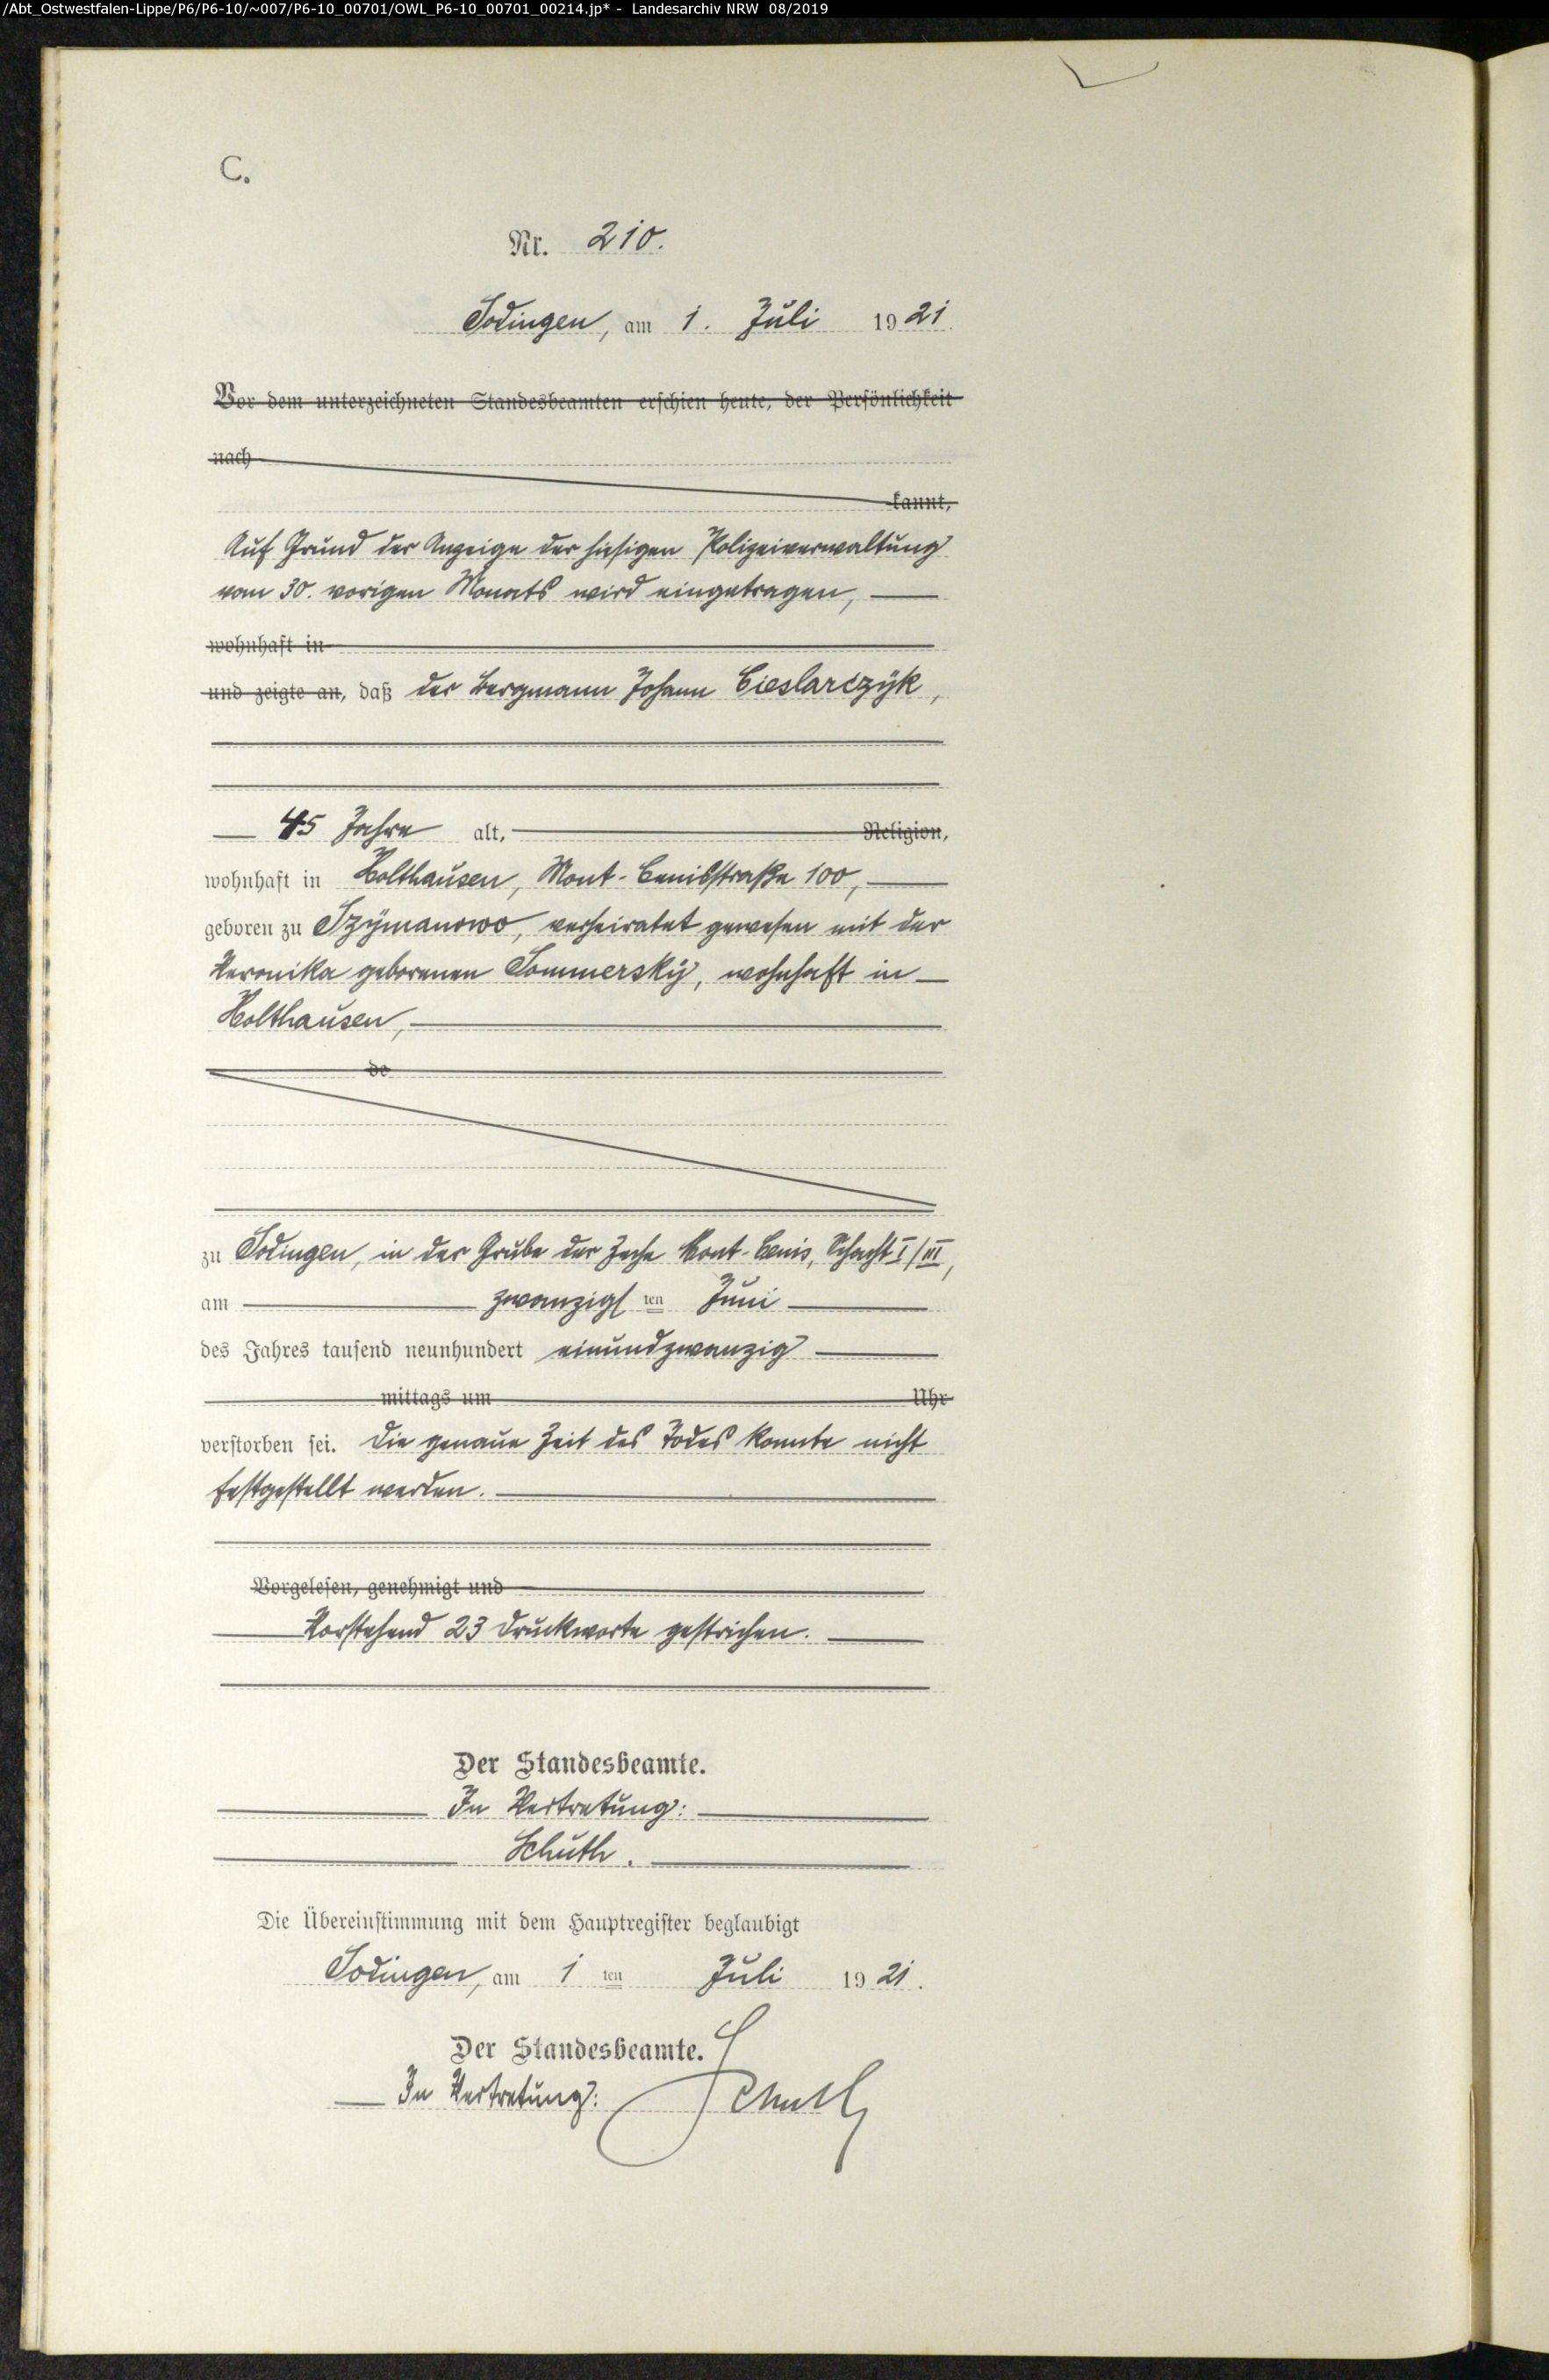 /Abt_Ostwestfalen-Lippe/P6/P6-10/~007/P6-10_00701/OWL_P6-10_00701_00214.jp* - Landesarchiv NRW 08/2019
C.
Nr. 210.
Sodingen, am 1. Juli 1921.
Vor dem unterzeichneten Standesbeamten erschien heute, der Persönlichkeit
nach
kannt,
Auf Grund der Anzeige der hiesigen Polizeiverwaltung
vom 30. vorigen Monats wird eingetragen,
wohnhaft in
und zeigte an, daß der Bergmann Johann Cieslarczyk,
45 Jahre alt, Religion,
wohnhaft in Holthausen, Mont-Cenisstraße 100,
geboren zu Szymanowo, verheiratet gewesen mit der
Veronika geborenen Sommersky, wohnhaft in
Holthausen,
de
zu Sodingen, in der Grube der Zeche Mont-Cenis, Schacht I/III,
am zwanzigsten Juni
des Jahres tausend neunhundert einundzwanzig
mittags um Uhr
verstorben sei. Die genaue Zeit des Todes konnte nicht
festgestellt werden.
Vorgelesen, genehmigt und
Vorstehend 23 Druckworte gestrichen.
Der Standesbeamte.
In Vertretung:
Schuth.
Die Übereinstimmung mit dem Hauptregister beglaubigt
Sodingen, am 1ten Juli 1921.
Der Standesbeamte.
In Vertretung: Schuth